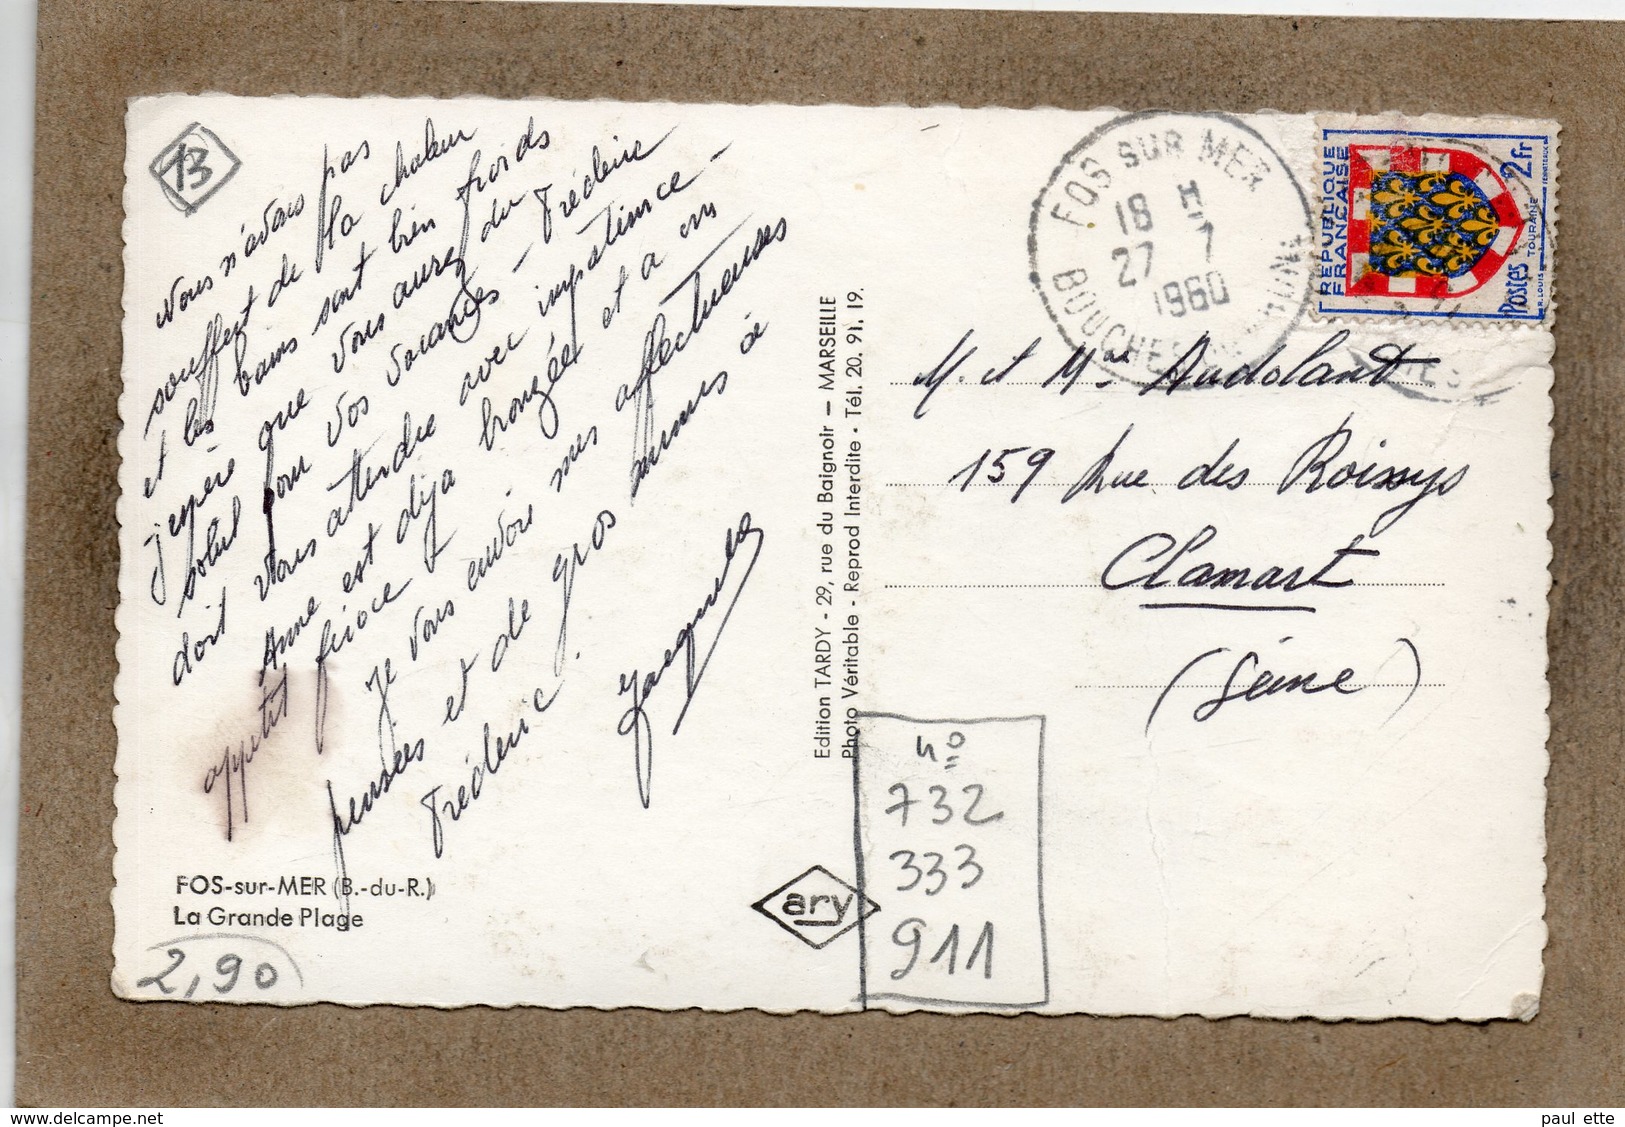 13
Nous n'avons pas
souffert de la chaleur
et les bains sont bien froids
j'espère que vous aurez du
soleil pour vos vacances - Frédéric
doit vous attendre avec impatience -
Anne est déjà bronzée et a un
appetit féroce
Je vous envoie mes affectueuses
pensées et de gros mimis à
Frédéric.
FOS-sur-MER (B.-du-R.)
La Grande Plage
2,90
Edition TARDY - 29, rue du Baignoir — MARSEILLE
Photo Véritable - Reprod Interdite • Tél. 20. 91. 19.
ary
FOS SUR MER
18 H
27 - 7
1960
BOUCHES DU RHONE
REPUBLIQUE
FRANCAISE
2fr
Postes
TOURAINE
R. LOUIS
M. et Mme Audolant
159 Rue des Roissys
Clamart
(Seine)
n°
732
333
911
delcampe.net
paul ette